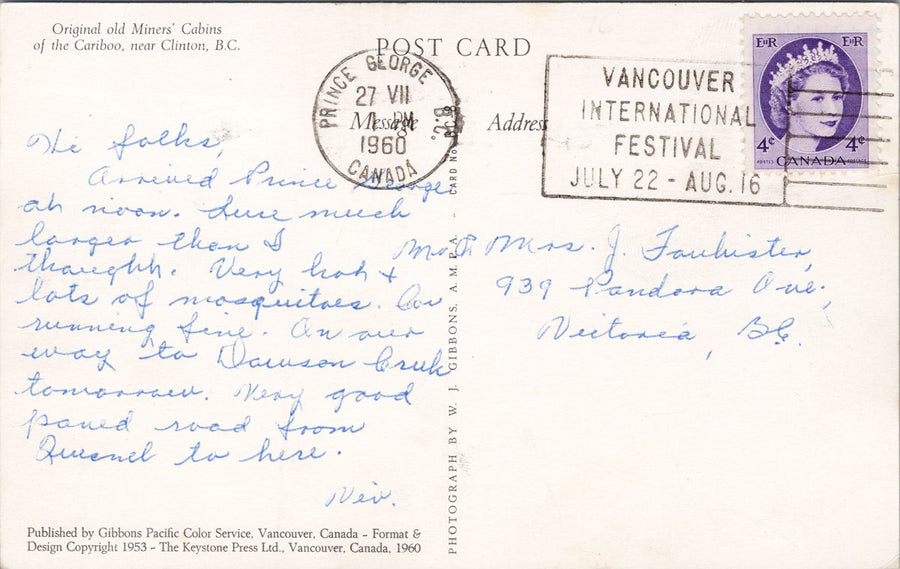 Original old Miners' Cabins
of the Cariboo, near Clinton, B.C.
POST CARD
PRINCE GEORGE B.C.
27 VII
PM
1960
CANADA
VANCOUVER
INTERNATIONAL
FESTIVAL
JULY 22 - AUG. 16
EIIR EIIR
4¢ 4¢
POSTES CANADA POSTAGE
Message
Address
CARD No.
Hi folks,
Arrived Prince George
at noon. Sure much
larger than I
thought. Very hot &
lots of mosquitoes. Car
running fine. On our
way to Dawson Creek
tomorrow. Very good
paved road from
Quesnel to here.
Viv.
Mr. & Mrs. J.
939 Pandora Ave.,
Victoria, BC.
PHOTOGRAPH BY W. J. GIBBONS, A.M.P.A.
Published by Gibbons Pacific Color Service, Vancouver, Canada - Format &
Design Copyright 1953 - The Keystone Press Ltd., Vancouver, Canada, 1960